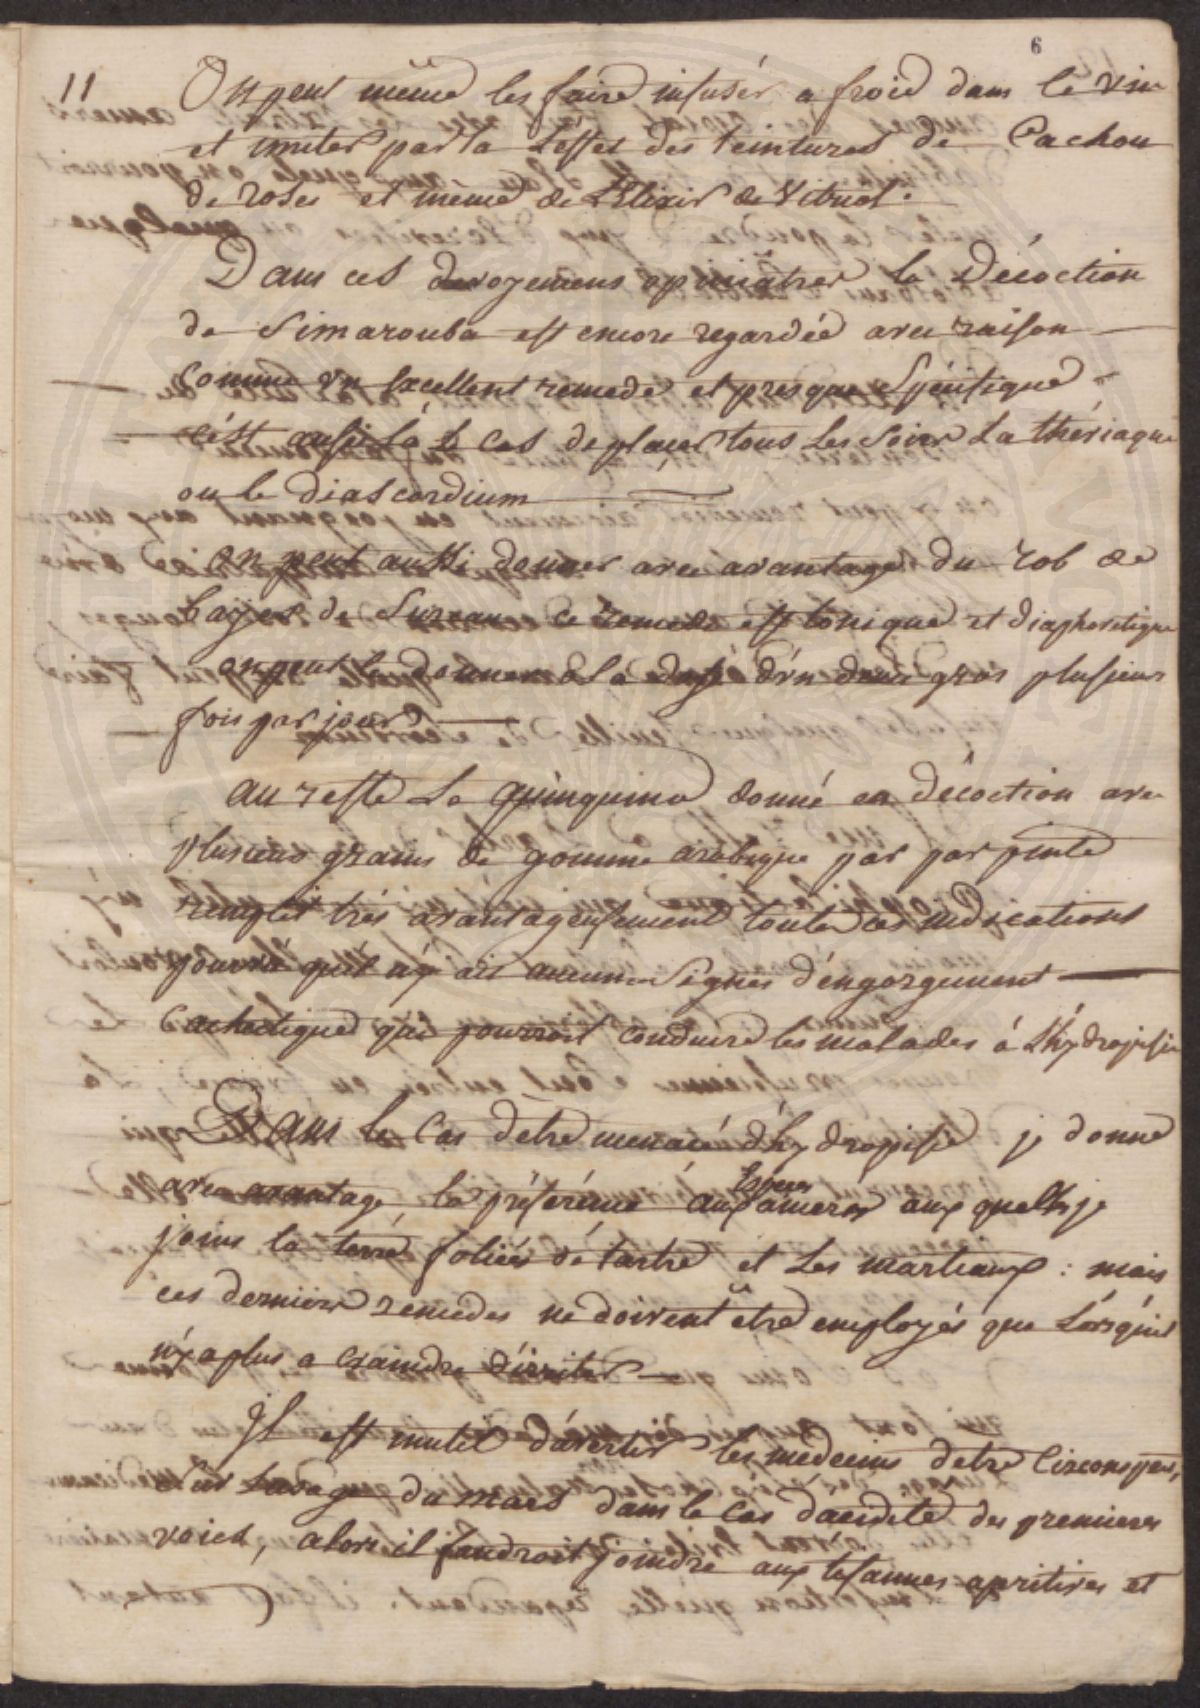 6
11
On peut même les faire infuser a froid dans le vin
et imiter par la L'effet des teintures de Cachou
de roses et même de L'Elixir de Vitriol.
Dans ces devoyemens opiniatres la Décoction
de Simarouba est encore regardée avec raison
comme un Excellent remede et presque Spécifique
c'est aussi là le cas de placer tous Les soirs La thériaque
ou le diascordium
on peut aussi donner avec avantage du rob de
bayes de Sureau ce remede est tonique et diaphoretique
on peut le donner a la dose d'un deux gros plusieurs
fois par jour
au reste Le quinquina donné en décoction avec
plusieurs grains de gomme arabique par par pinte
remplit trés avantageusement toutes ces indications
pourvu qu'il n'y ait aucuns Signes d'éngorgement
Cachectique qui pourroit conduire les malades á L'hydropisie
Dans le Cas d'etre menacé d'hydropisie je donne
avec avantage la préférence aux amers aux quels je
joins la terre foliée dé tartre et Les martiaux : mais
ces derniers remedes ne doivent être employés que Lorsqu'il
n'y a plus a craindre d'irriter
Il est inutil d'avertir les médecins d'etre Circonspects
Sur L'usage du mars dans le Cas d'acidité des premieres
voies, alors il faudroit joindre aux tisannes apritives et